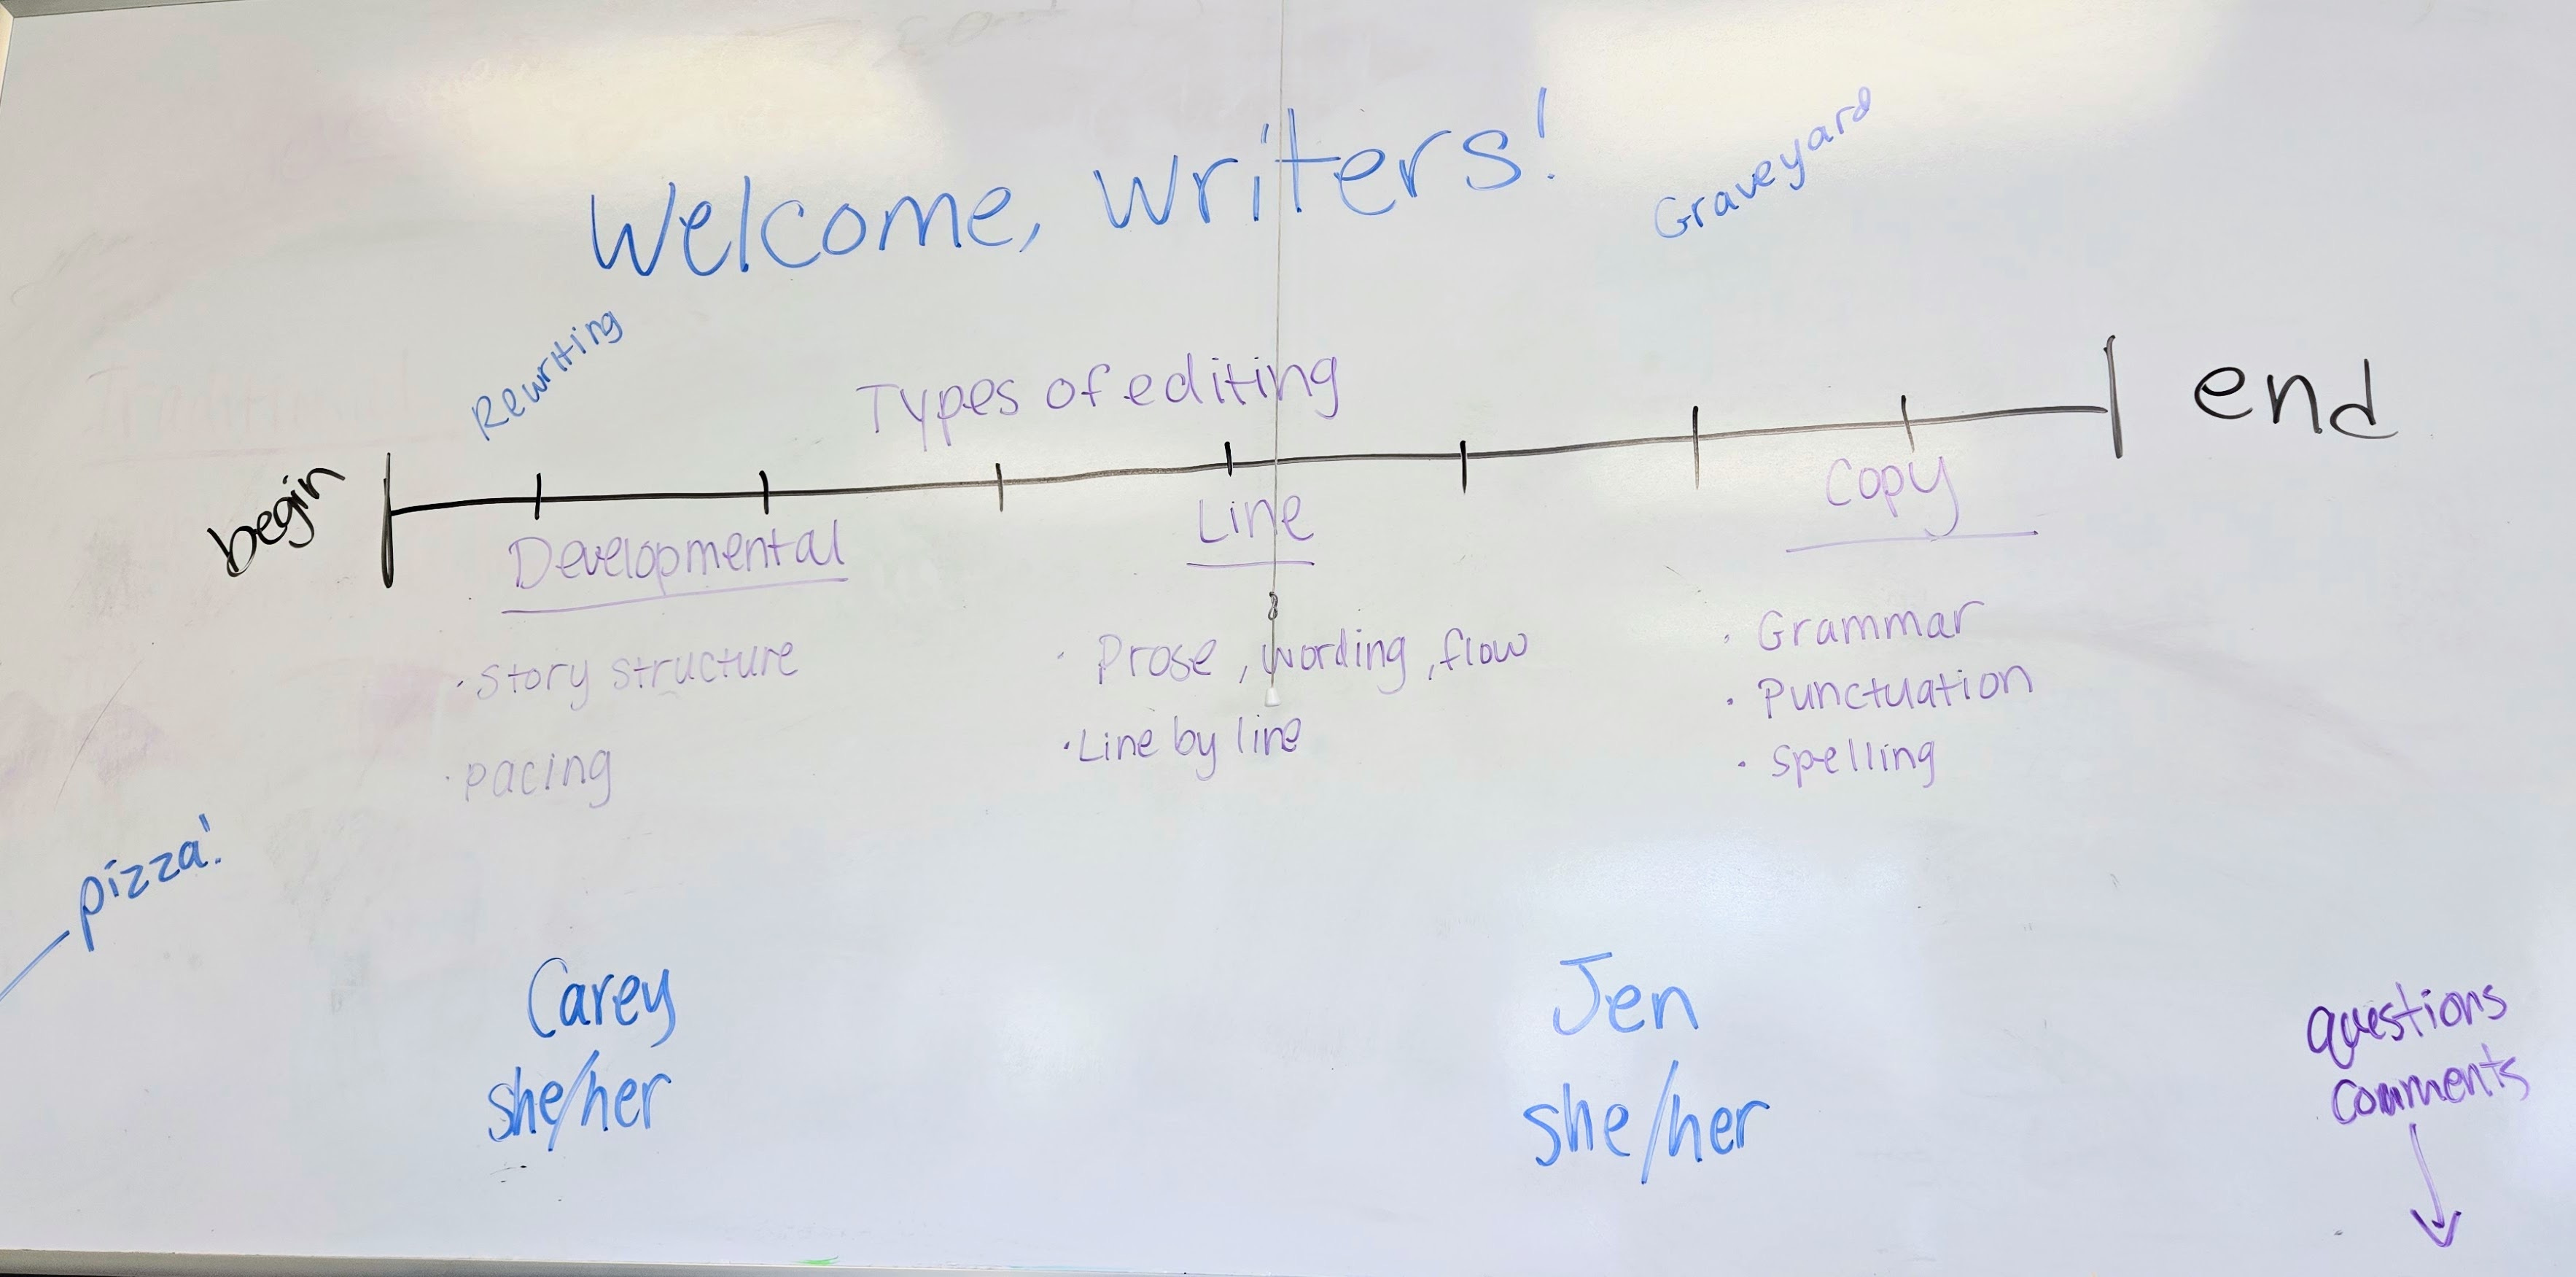 Welcome, writers!
Graveyard
Rewriting
Types of editing
begin
end
Developmental
· Story structure
· pacing
Line
· Prose, wording, flow
· Line by line
Copy
· Grammar
· Punctuation
· spelling
pizza!
Carey
she/her
Jen
she/her
questions
comments